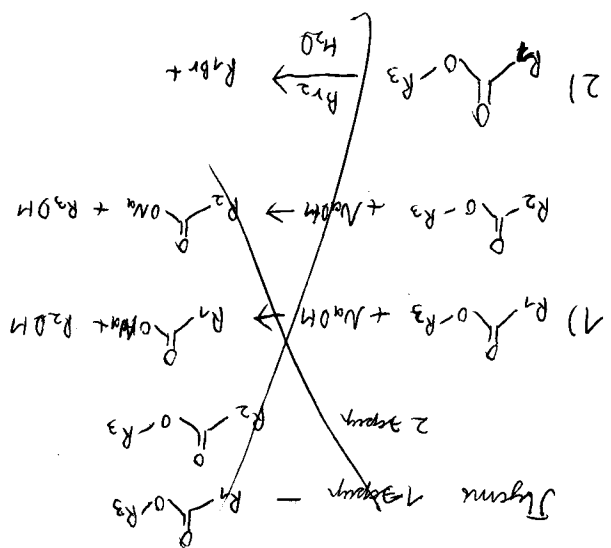 Пусть 1 эфир – R₁-C(=O)-O-R₃
2 эфир R₂-C(=O)-O-R₃
1) R₁-C(=O)-O-R₃ + NaOH → R₁-C(=O)-ONa + R₂OH
R₂-C(=O)-O-R₃ + NaOH → R₂-C(=O)-ONa + R₃OH
2) R₁-C(=O)-O-R₃ Br₂ → H₂O R₁Br +